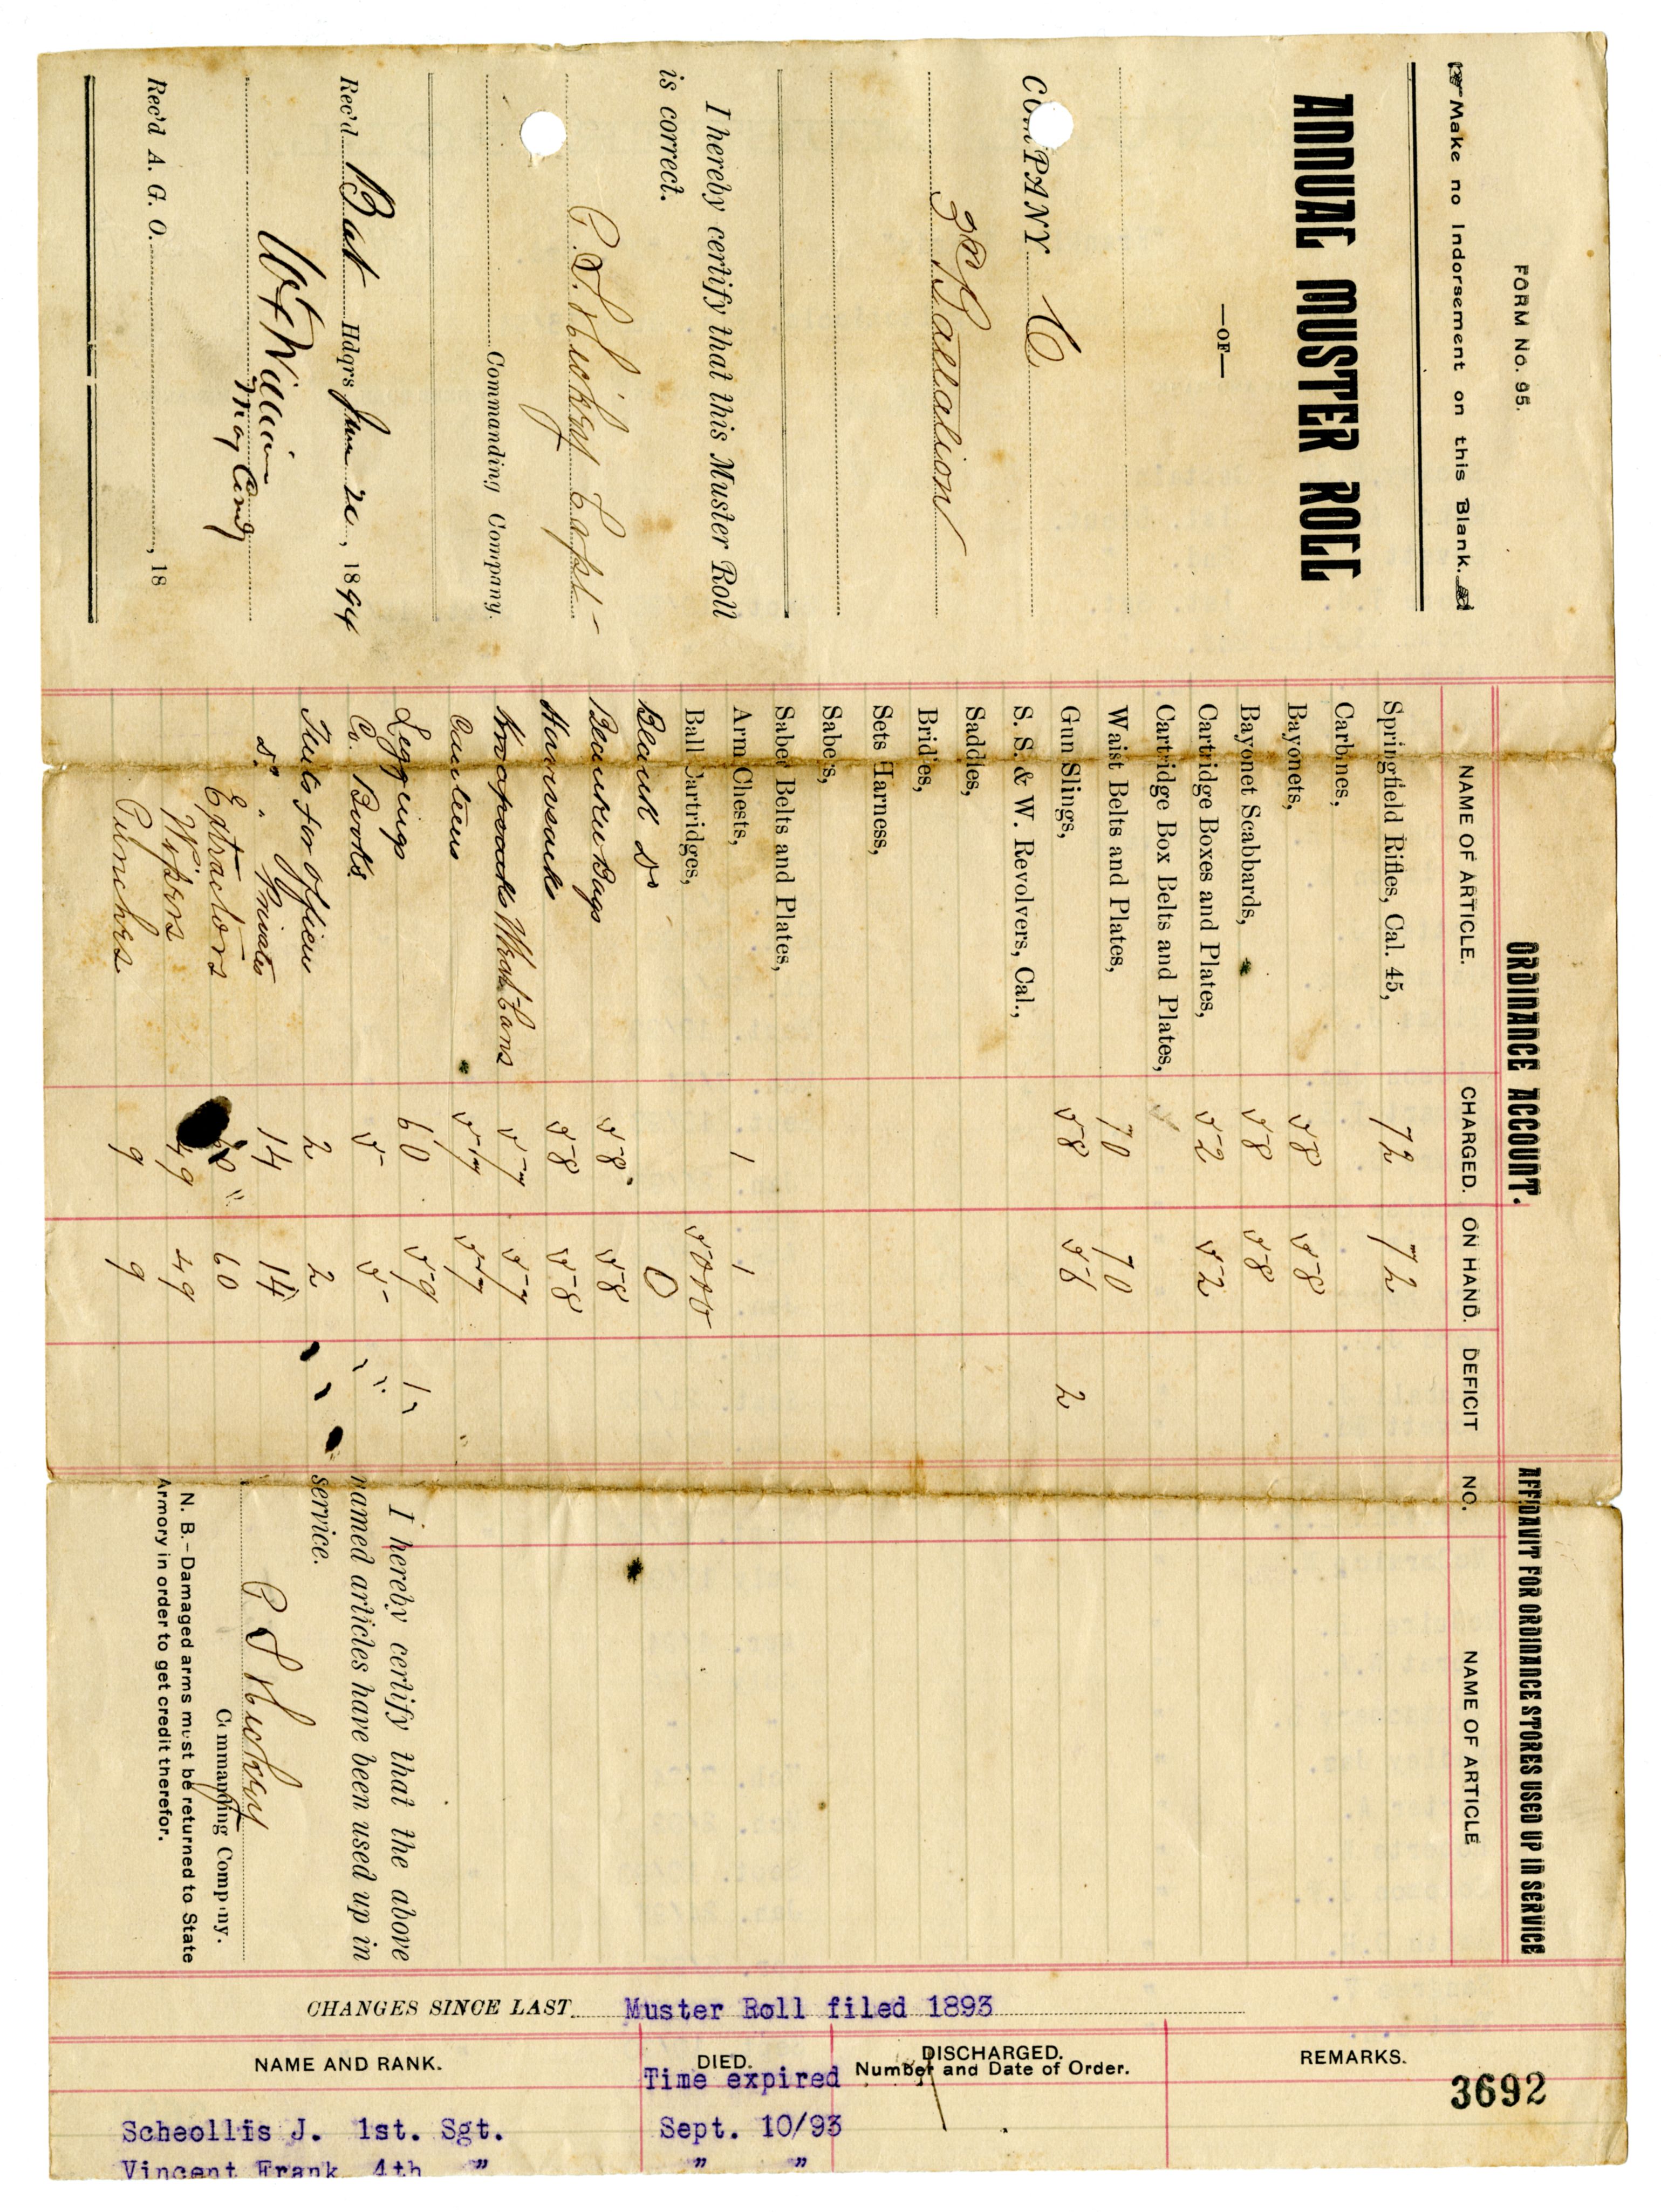 FORM No. 95.
Make no Indorsement on this Blank.
ANNUAL MUSTER ROLL
—OF—
COMPANY C
3rd Battalion
I hereby certify that this Muster Roll
is correct.
Capt-
Commanding Company.
Rec'd Bat Hdqrs June 20, 1894
Rec'd A. G. O. , 18
ORDINANCE ACCOUNT.
NAME OF ARTICLE. CHARGED. ON HAND. DEFICIT
Springfield Rifles, Cal. 45, 72 72
Carbines,
Bayonets, 58 58
Bayonet Scabbards, 58 58
Cartridge Boxes and Plates, 52 52
Cartridge Box Belts and Plates,
Waist Belts and Plates, 70 70
Gun Slings, 58 56 2
S. S. & W. Revolvers, Cal.,
Saddles,
Bridles,
Sets Harness,
Sabers,
Saber Belts and Plates,
Arm Chests, 1 1
Ball Cartridges, 5000
Blank do 0
Blanket Bags 58 58
Haversacks 58 58
Knapsacks Meat Cans 57 57
Canteens 57 57
Leggings 60 59 1
Co. Books 5 5
Tents for Officers 2 2
do " Privates 14 14
Extractors 60
Wipers 49 49
Punches 9 9
AFFIDAVIT FOR ORDINANCE STORES USED UP IN SERVICE
NO. NAME OF ARTICLE
I hereby certify that the above
named articles have been used up in
service.
Commanding Company.
N. B.—Damaged arms must be returned to State
Armory in order to get credit therefor.
CHANGES SINCE LAST Muster Roll filed 1893
NAME AND RANK. DIED. DISCHARGED. Number and Date of Order. REMARKS.
Time expired
3692
Scheollis J. 1st. Sgt. Sept. 10/93
Vincent Frank 4th " " "